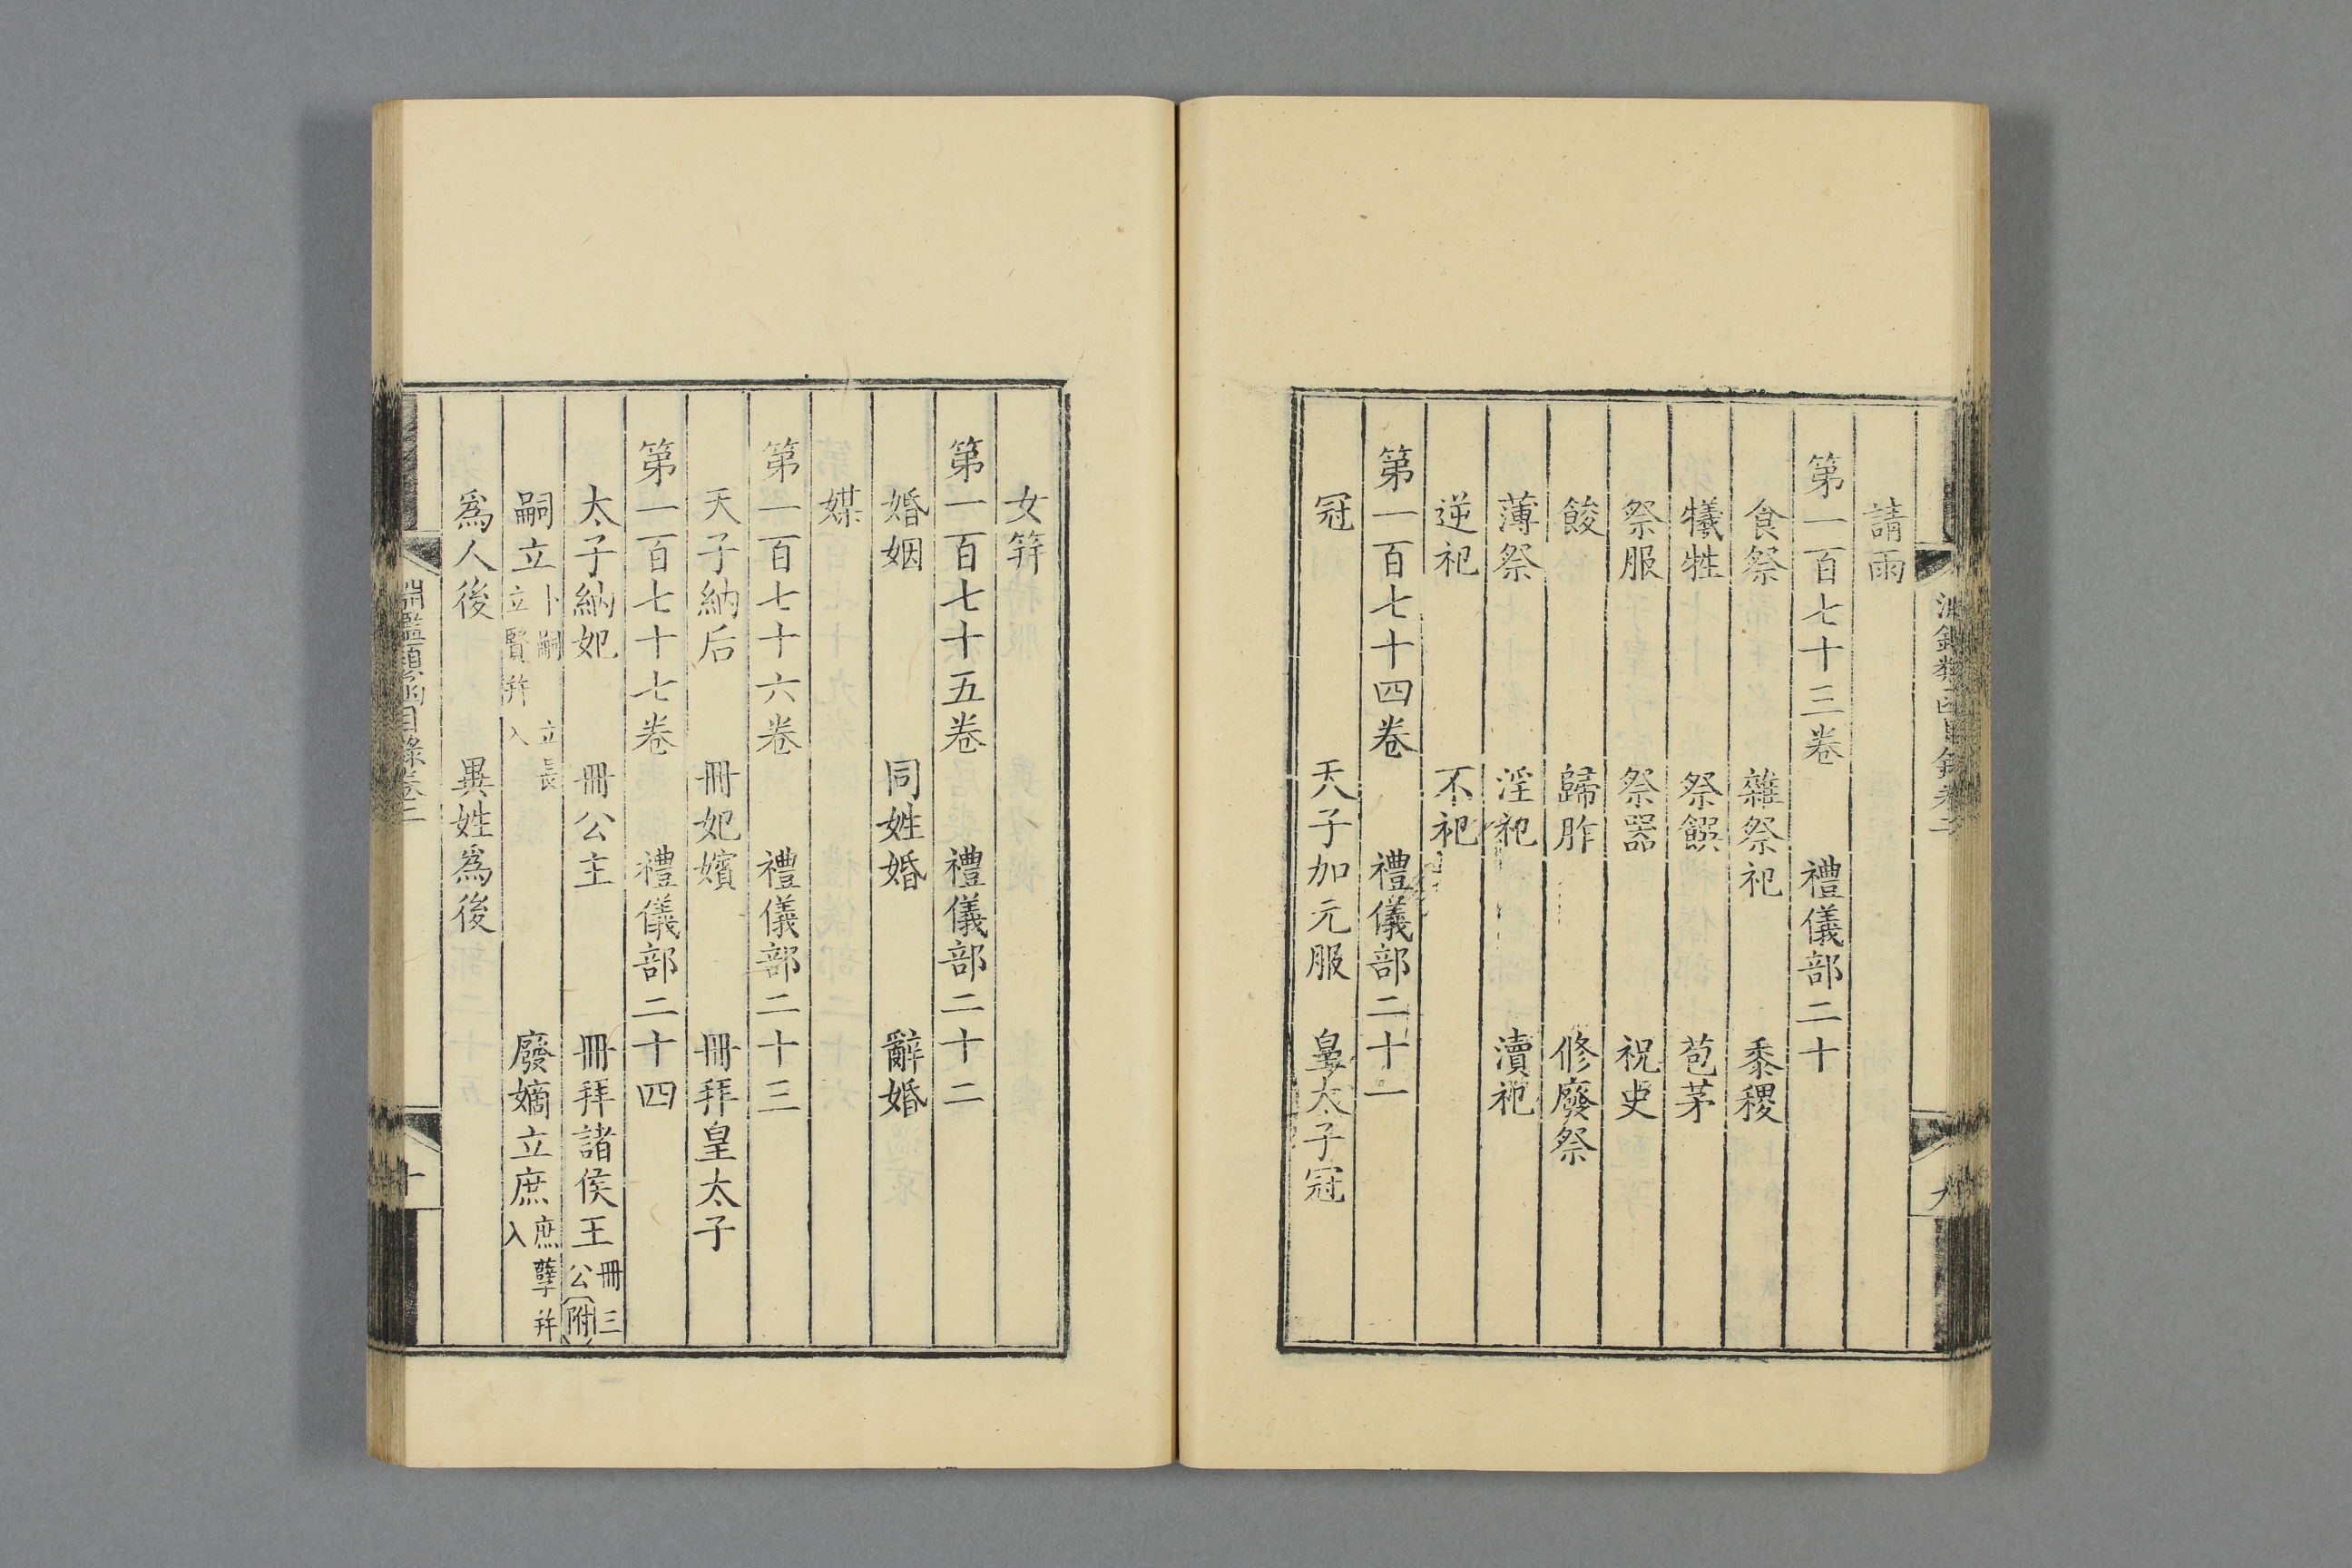 請雨
第一百七十三卷 禮儀部二十
食祭 雜祭祀 黍稷
犧牲 祭饌 苞茅
祭服 祭器 祝史
餕 歸胙 修廢祭
薄祭 淫祀 瀆祀
逆祀 不祀
第一百七十四卷 禮儀部二十一
冠 天子加元服 皇太子冠
女筓
第一百七十五卷 禮儀部二十二
婚姻 同姓婚 辭婚
媒
第一百七十六卷 禮儀部二十三
天子納后 冊妃嬪 冊拜皇太子
第一百七十七卷 禮儀部二十四
太子納妃 冊公主 冊拜諸侯王 冊三公附
嗣立 卜嗣 立長立賢并入 廢嫡立庶 庶孽并入
爲人後 異姓爲後
淵鑑類函目錄卷二
十